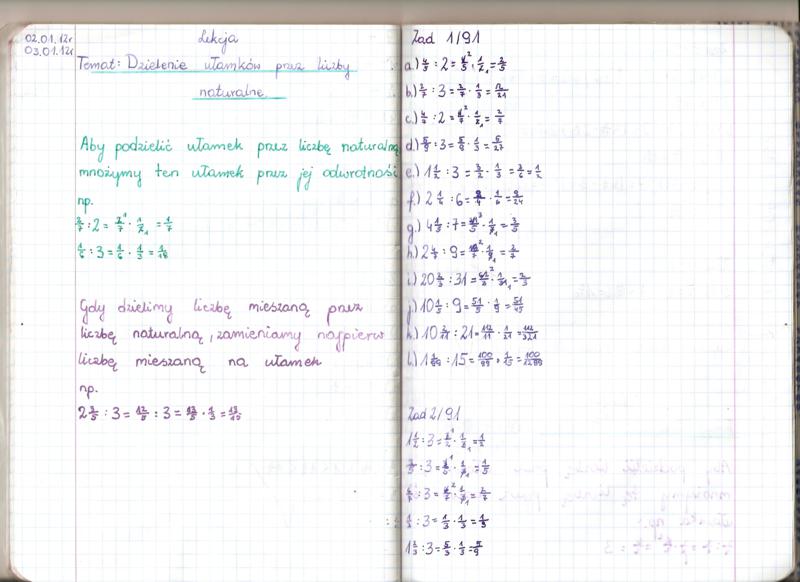 02.01.12r
03.01.12r
Lekcja
Temat: Dzielenie ułamków przez liczby
naturalne.
Aby podzielić ułamek przez liczbę naturalną
mnożymy ten ułamek przez jej odwrotność
np.
2/7 : 2 = 2/7 · 1/2 = 1/7
1/6 : 3 = 1/6 · 1/3 = 1/18
Gdy dzielimy liczbę mieszaną przez
liczbę naturalną, zamieniamy najpierw
liczbę mieszaną na ułamek
np.
Zad 1/91
a.) 4/5 : 2 = 4/5 · 1/2 = 2/5
b.)
c.) 4/7 : 2 = 4/7 · 1/2 = 2/7
d.) 5/9 : 3 = 5/9 · 1/3 = 5/27
e.) 1 1/2 : 3 = 3/2 · 1/3 = 3/6 = 1/2
f.) 2 1/4 : 6 = 9/4 · 1/6 = 9/24
g.) 4 1/5 : 7 = 21/5 · 1/7 = 3/5
h.) 2 4/7 : 9 = 18/7 · 1/9 = 2/7
i.) 20 2/3 : 31 = 62/3 · 1/31 = 2/3
j.) 10 1/5 : 9 = 51/5 · 1/9 = 51/45
k.)
l.) 1 1/99 : 15 = 100/99 · 1/15
Zad 2/91
1 1/2 : 3 = 3/2 · 1/3 = 1/2
3/5 : 3 = 3/5 · 1/3 = 1/5
6/7 : 3 = 6/7 · 1/3 = 2/7
1/3 : 3 = 1/3 · 1/3 = 1/9
1 2/3 : 3 = 5/3 · 1/3 = 5/9